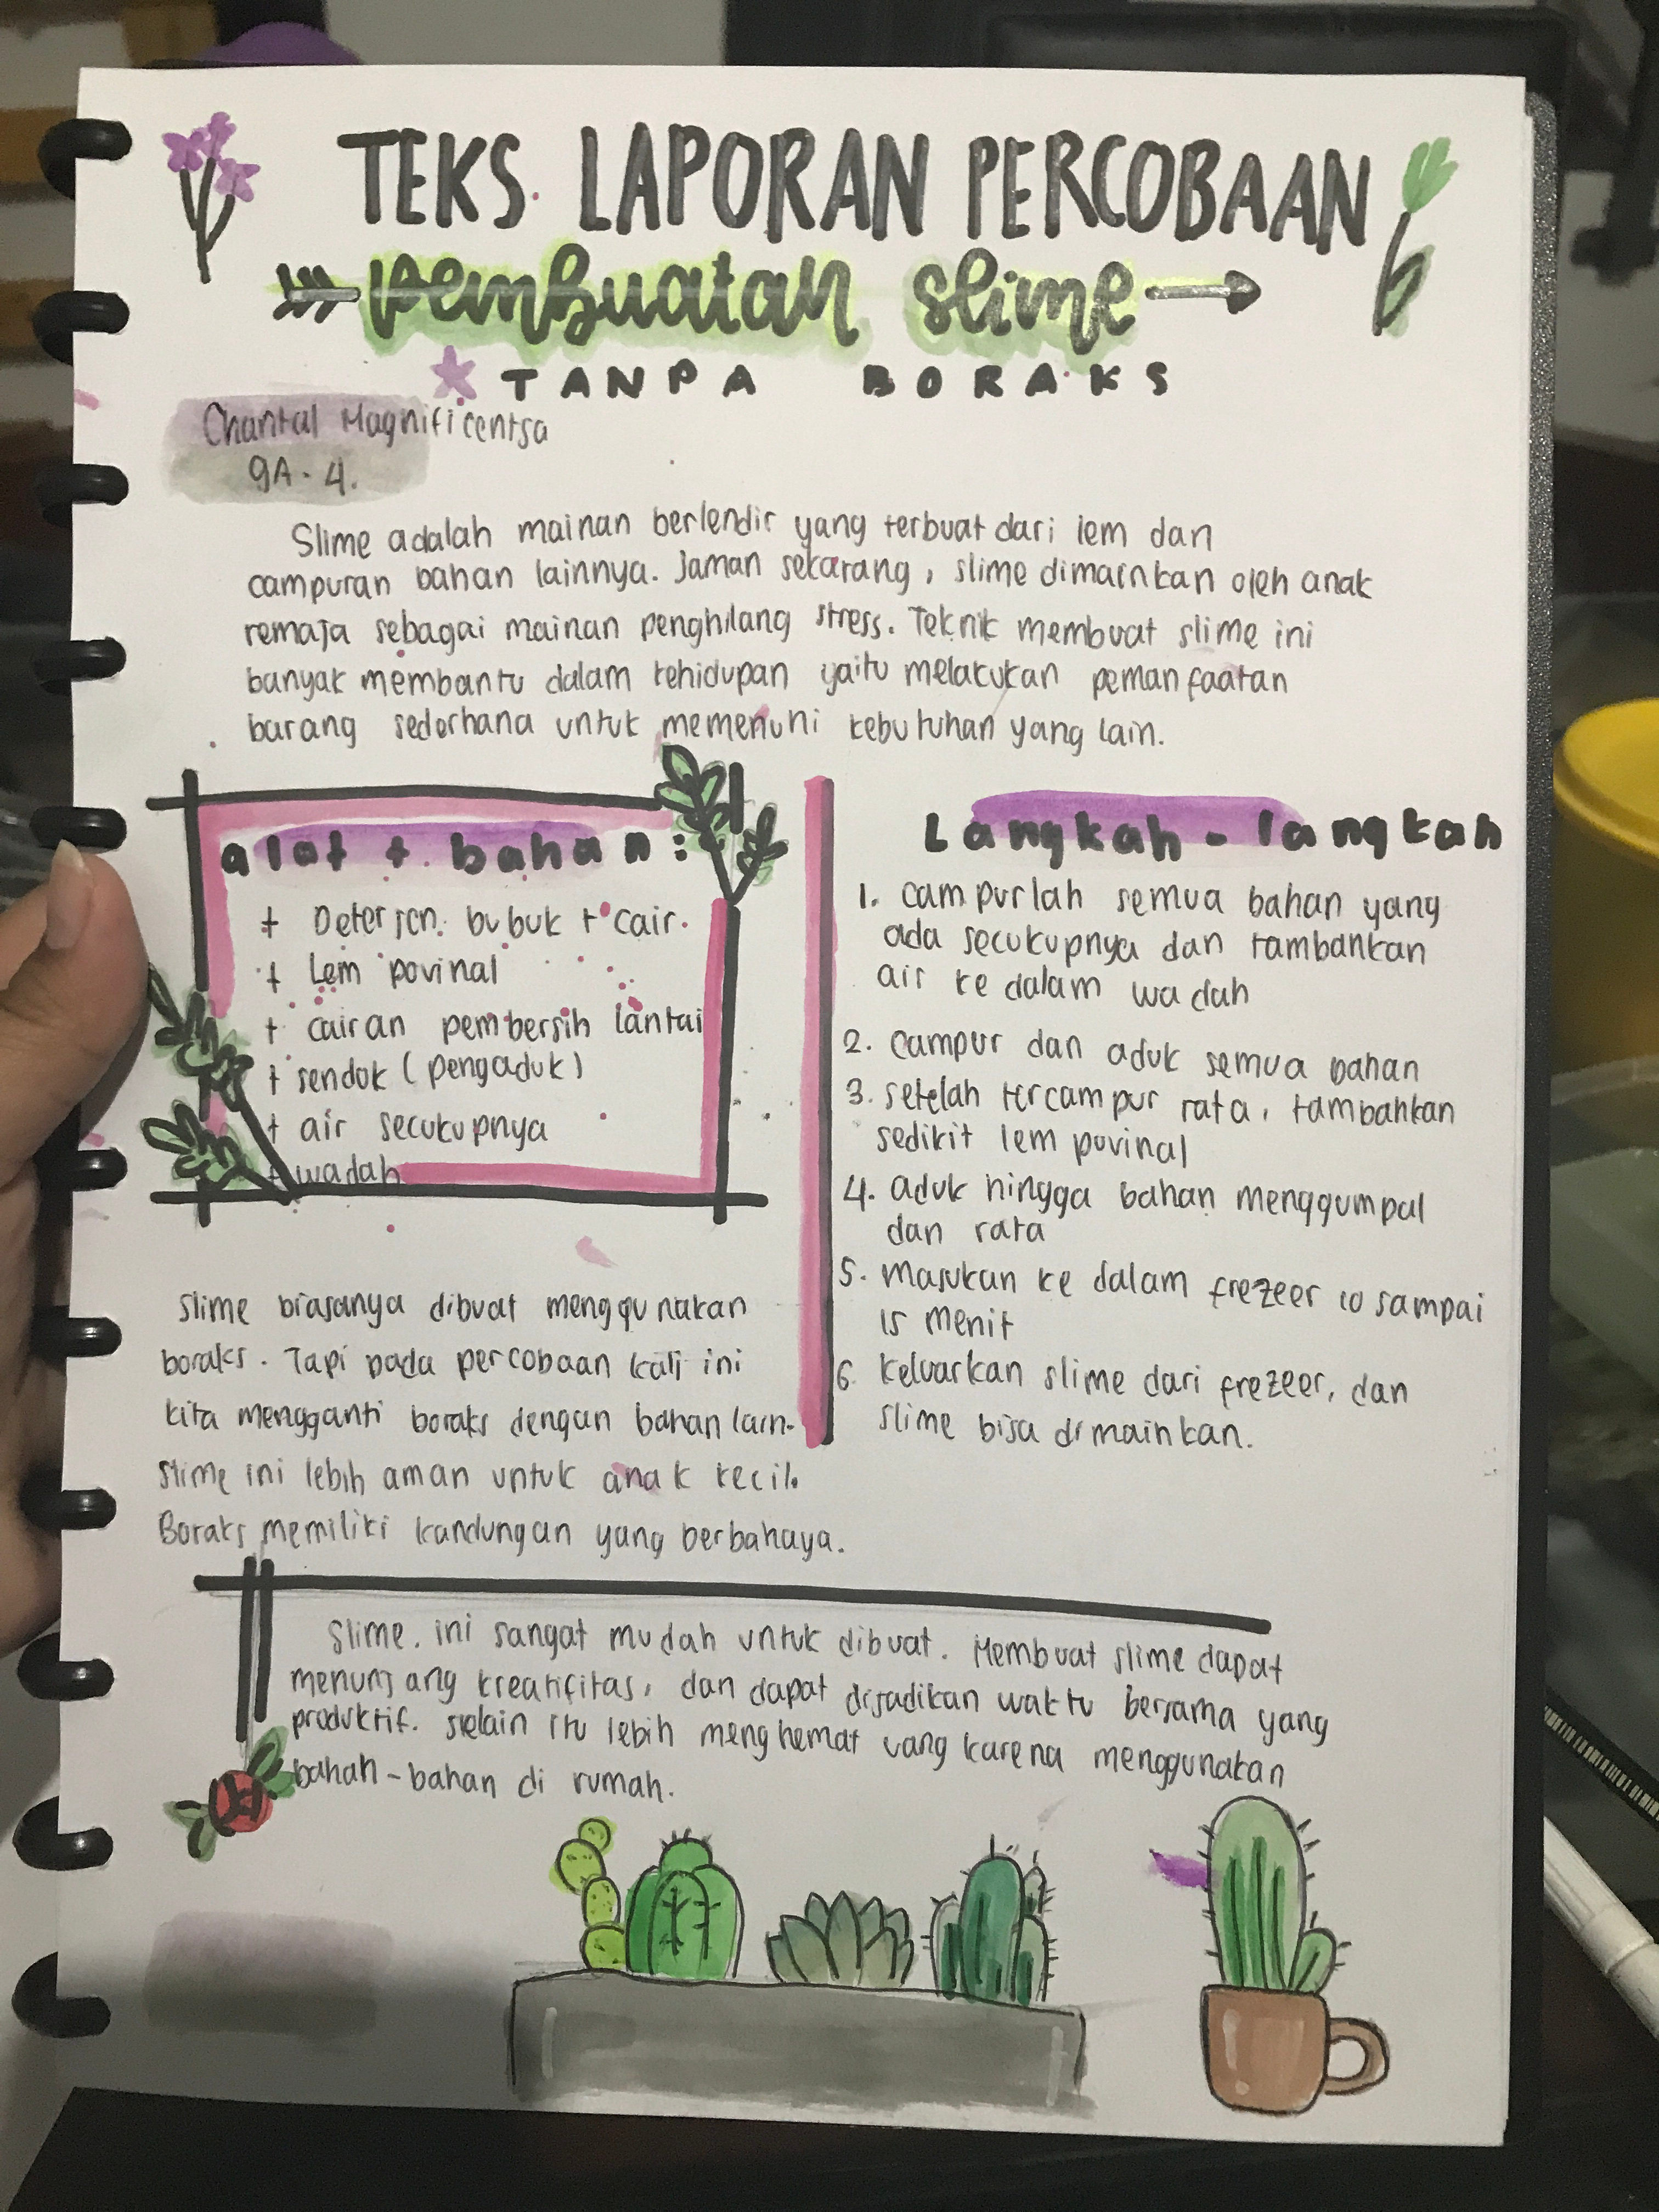 TEKS LAPORAN PERCOBAAN
pembuatan slime
TANPA BORAKS
Chantal Magnificentsa
9A - 4.
Slime adalah mainan berlendir yang terbuat dari lem dan
campuran bahan lainnya. Jaman sekarang, slime dimainkan oleh anak
remaja sebagai mainan penghilang stress. Teknik membuat slime ini
banyak membantu dalam kehidupan yaitu melakukan pemanfaatan
barang sederhana untuk memenuhi kebutuhan yang lain.
alat + bahan :
+ Deterjen bubuk + cair.
+ Lem povinal
+ cairan pembersih lantai
+ sendok (pengaduk)
+ air secukupnya
+ wadah
Slime biasanya dibuat menggunakan
boraks. Tapi pada percobaan kali ini
kita mengganti boraks dengan bahan lain.
Slime ini lebih aman untuk anak kecil.
Boraks memiliki kandungan yang berbahaya.
Langkah - langkah
1. campurlah semua bahan yang
ada secukupnya dan tambahkan
air ke dalam wadah
2. campur dan aduk semua bahan
3. setelah tercampur rata, tambahkan
sedikit lem povinal
4. aduk hingga bahan menggumpal
dan rata
5. masukan ke dalam frezeer 10 sampai
15 menit
6. keluarkan slime dari frezeer, dan
slime bisa dimainkan.
Slime ini sangat mudah untuk dibuat. Membuat slime dapat
menunjang kreatifitas, dan dapat dijadikan waktu bersama yang
produktif. selain itu lebih menghemat uang karena menggunakan
bahan-bahan di rumah.